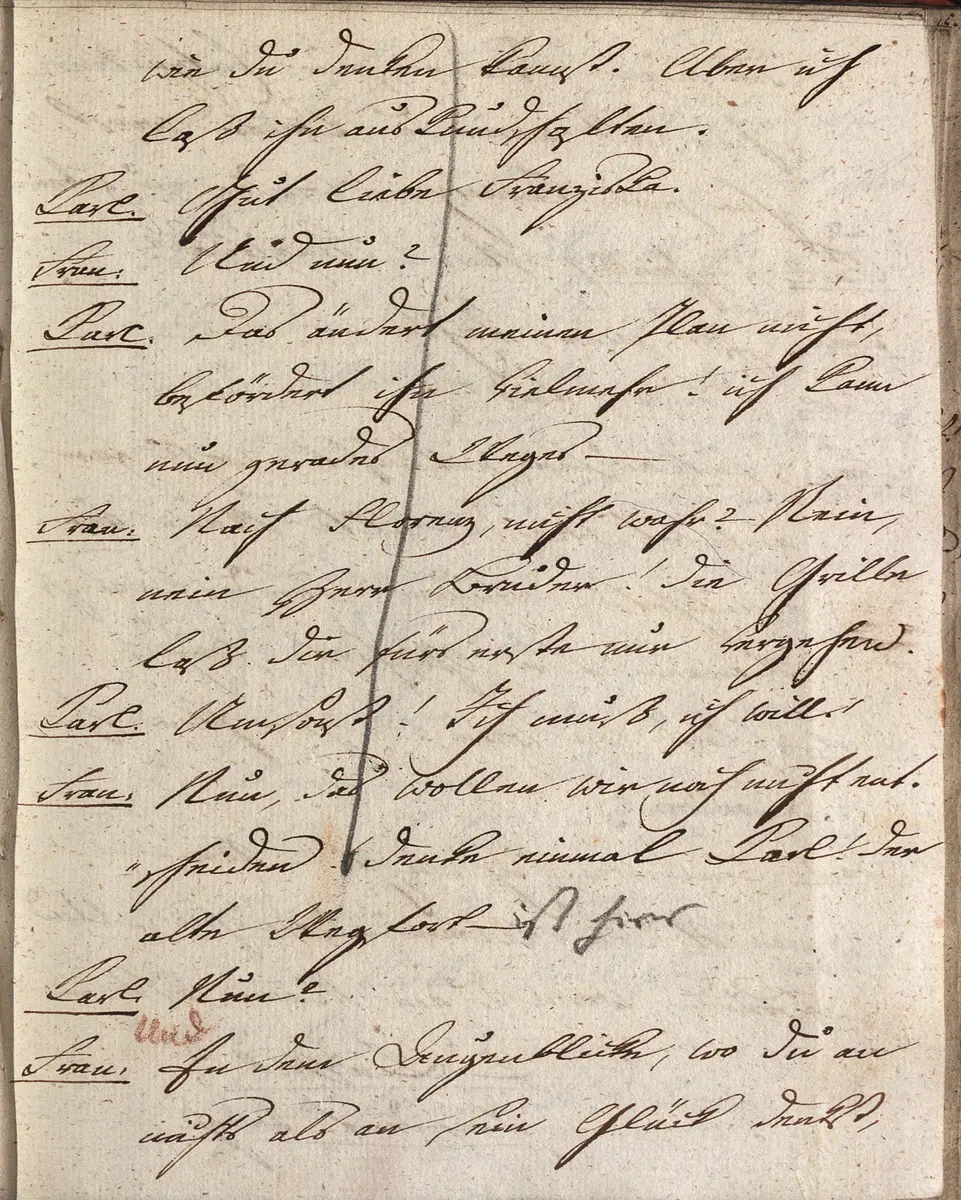 wie du denken kannst. Aber ich
laß ihn auskundschaften.
Karl. Gut liebe Franziska.
Fran. Und nun?
Karl. Das ändert meinen Plan nicht,
befördert ihn vielmehr! ich kann
nun gerades Weges —
Fran. Nach Florenz, nicht wahr? Nein,
nein Herr Bruder! die Grille
laß dir fürs erste nur vergehen.
Karl. Umsonst! Ich muß, ich will!
Fran. Nun, das wollen wir noch nicht ent-
"scheiden! denke einmal Karl! der
alte Wegfort — ist hier
Karl. Nun?
Und
Fran. In dem Augenblicke, wo du an
nichts als an sein Glück denkst,